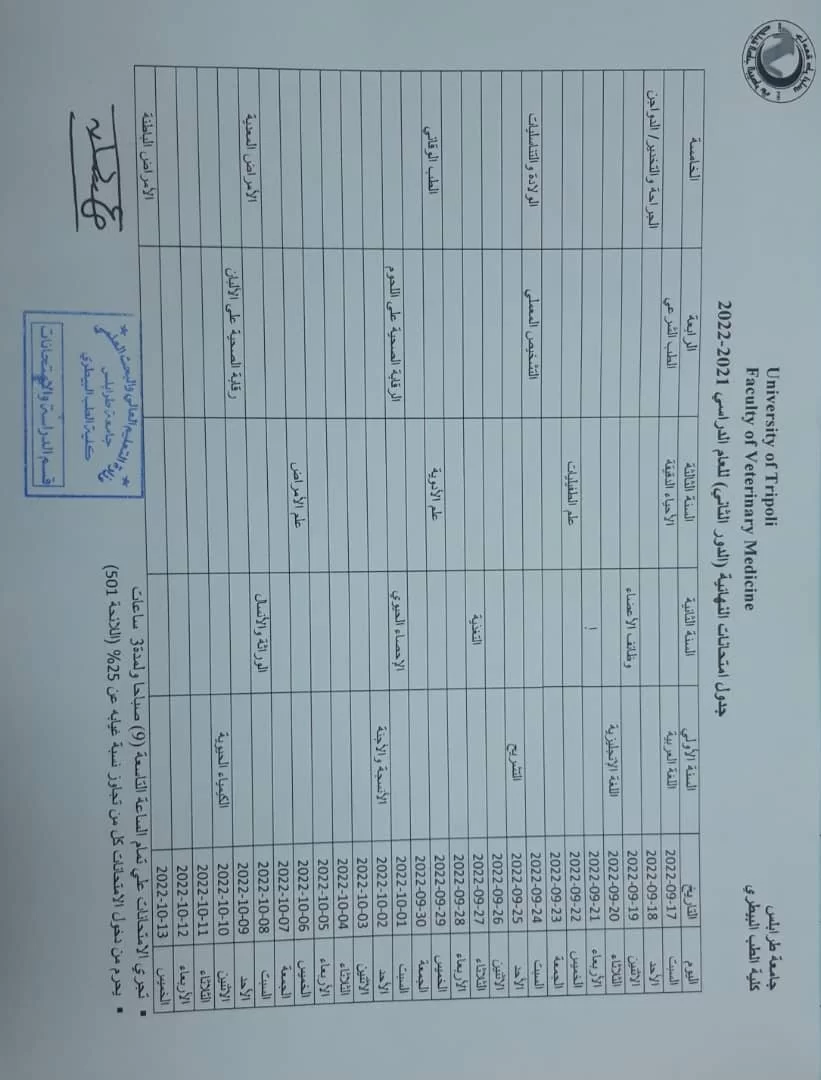 جامعة طرابلس
كلية الطب البيطري
University of Tripoli
Faculty of Veterinary Medicine
جدول امتحانات النهائية (الدور الثاني) للعام الدراسي 2021-2022
اليوم التاريخ السنة الأولي السنة الثانية السنة الثالثة الرابعة الخامسة
السبت 2022-09-17 اللغة العربية الأحياء الدقيقة الطب الشرعي
الأحد 2022-09-18 الجراحة والتخدير/ الدواجن
الاثنين 2022-09-19 وظائف الأعضاء
الثلاثاء 2022-09-20 اللغة الإنجليزية
الأربعاء 2022-09-21 !
الخميس 2022-09-22 علم الطفيليات
الجمعة 2022-09-23
السبت 2022-09-24 التشخيص المعملي الولادة والتناسليات
الأحد 2022-09-25 التشريح
الاثنين 2022-09-26
الثلاثاء 2022-09-27 التغذية
الأربعاء 2022-09-28
الخميس 2022-09-29 علم الأدوية الطب الوقائي
الجمعة 2022-09-30
السبت 2022-10-01 الإحصاء الحيوي الرقابة الصحية على اللحوم
الأحد 2022-10-02 الأنسجة والأجنة
الاثنين 2022-10-03
الثلاثاء 2022-10-04
الأربعاء 2022-10-05
الخميس 2022-10-06 علم الأمراض
الجمعة 2022-10-07
السبت 2022-10-08 الوراثة والأنسال
الأحد 2022-10-09 الأمراض المعدية
الاثنين 2022-10-10 الكيمياء الحيوية رقابة الصحية على الألبان
الثلاثاء 2022-10-11
الأربعاء 2022-10-12
الخميس 2022-10-13 الأمراض الباطنة
▪ تجري الامتحانات علي تمام الساعة التاسعة (9) صباحا ولمدة 3 ساعات
▪ يحرم من دخول الامتحانات كل من تجاوز نسبة غيابه عن 25% (اللائحة 501)
وزارة التعليم العالي والبحث العلمي
جامعة طرابلس
كلية الطب البيطري
قسم الدراسة والامتحانات